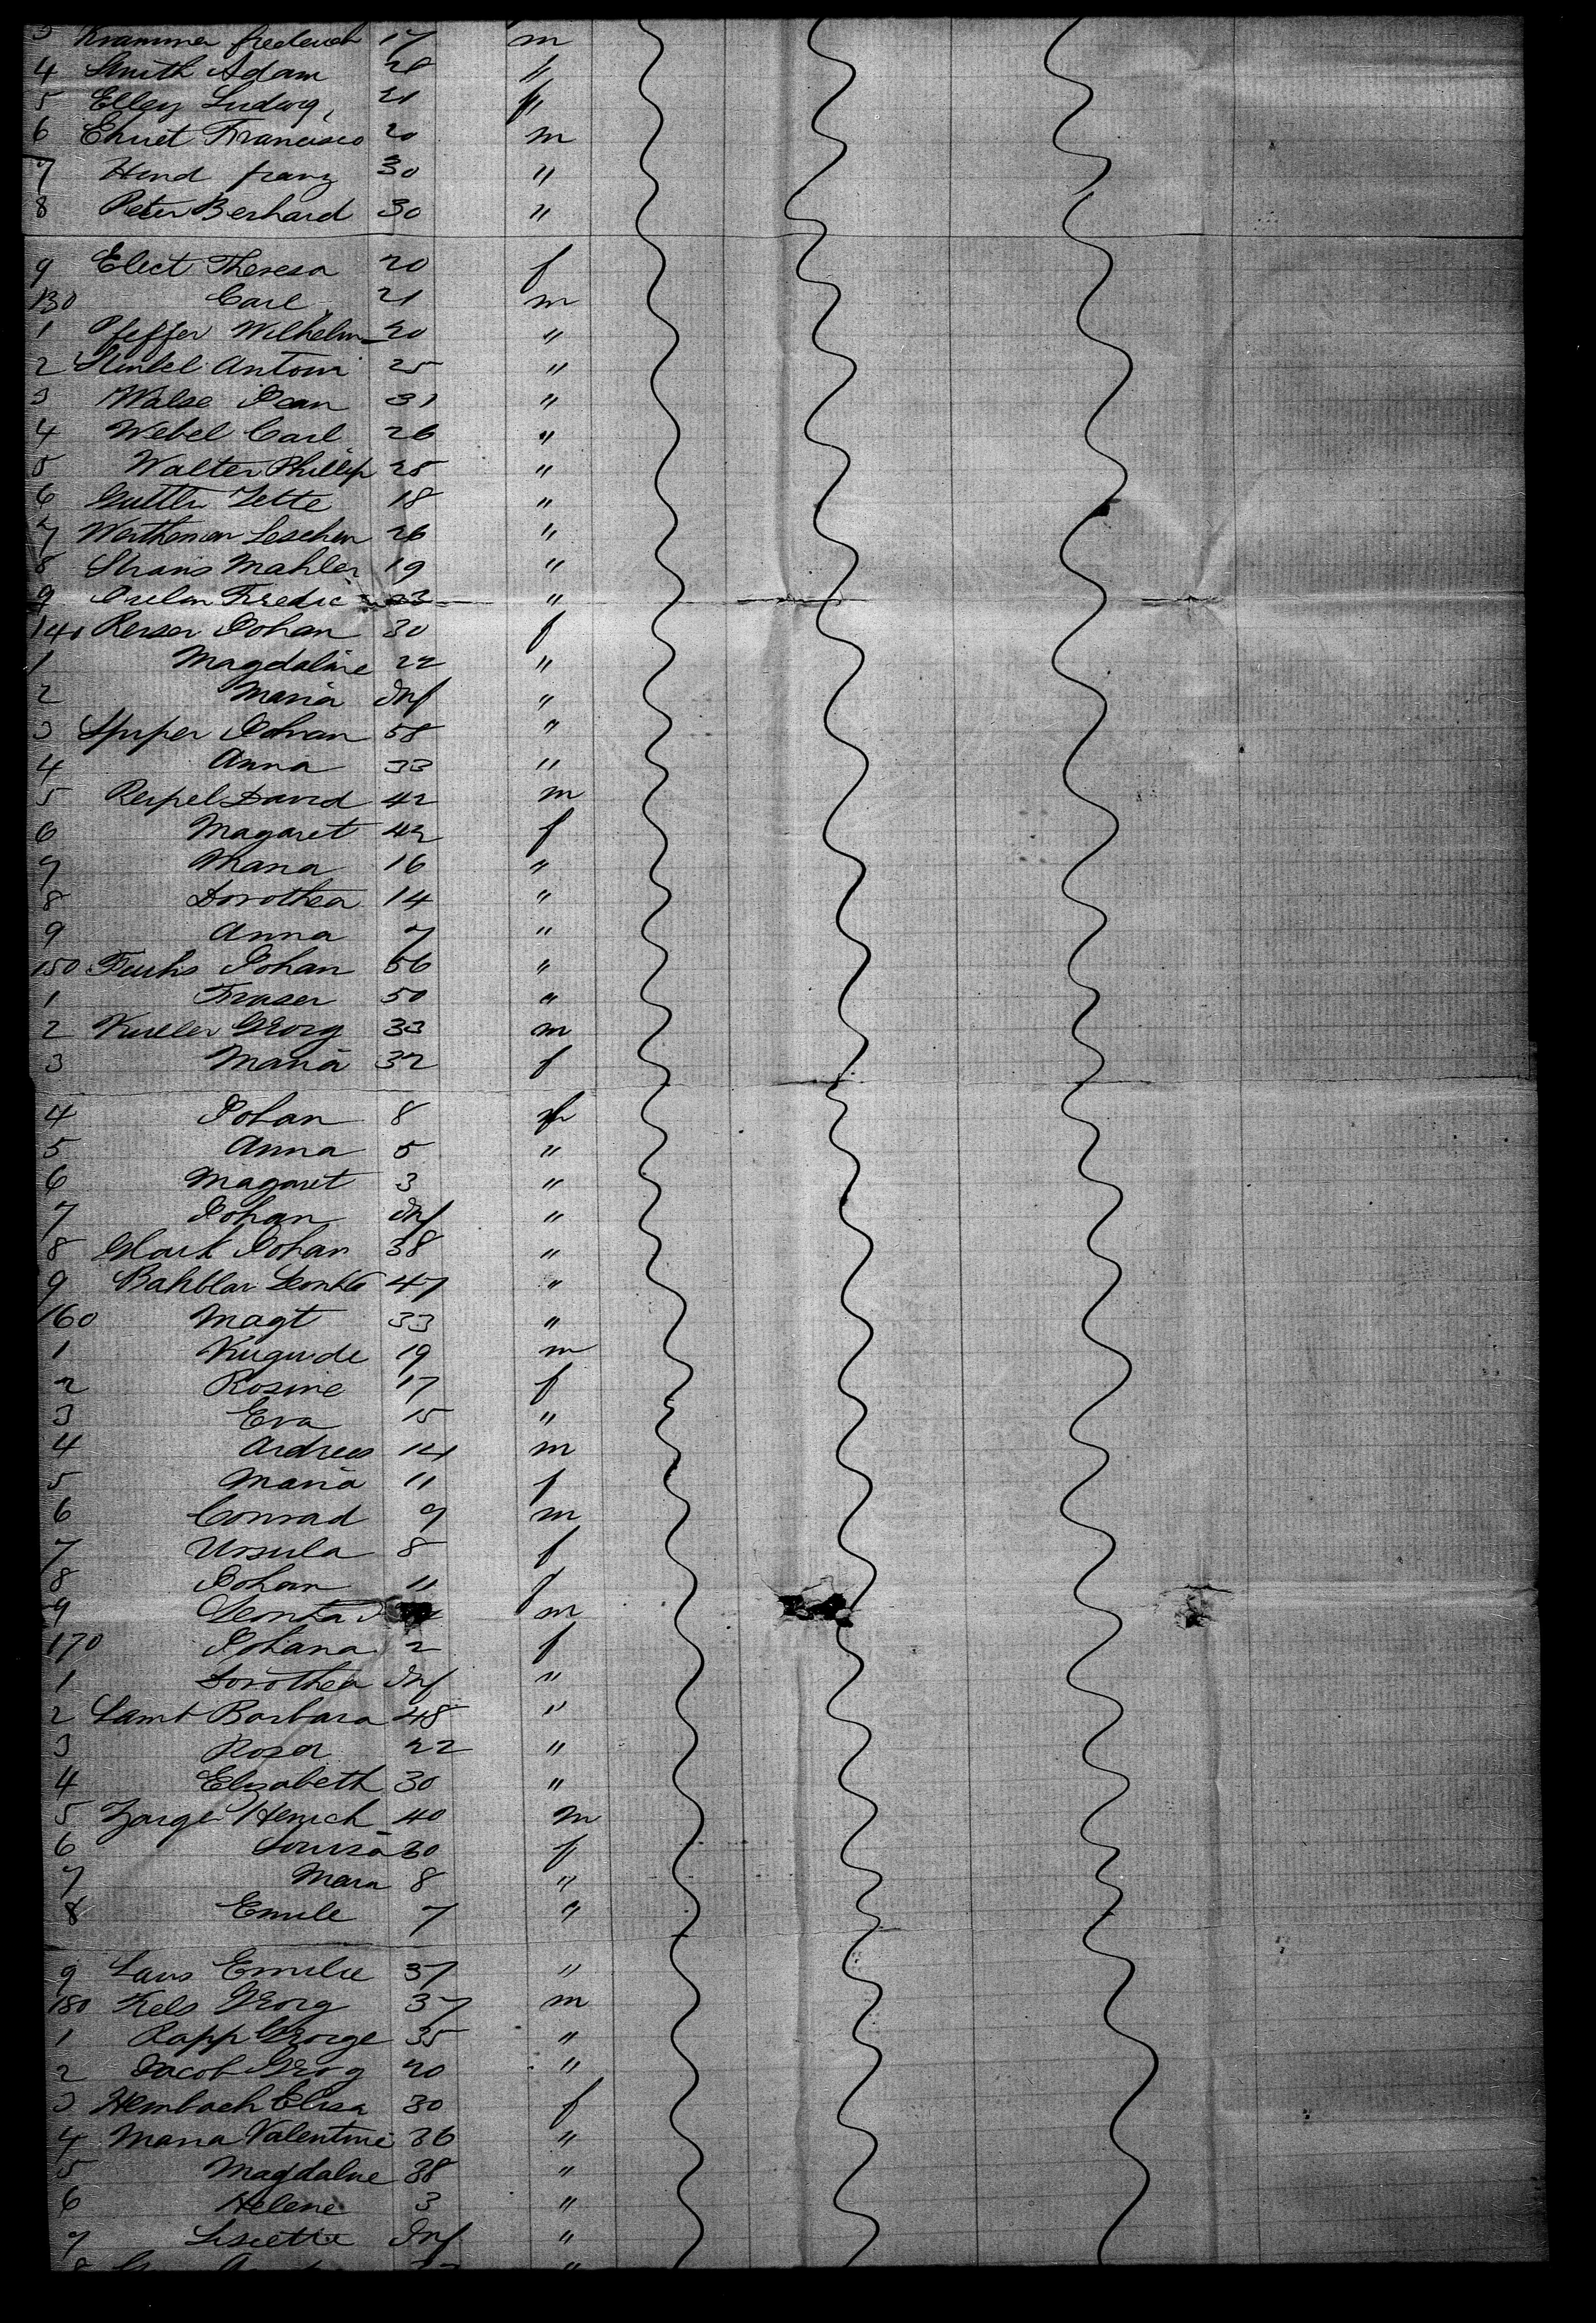 3 Krammer frederich 17 m
4 Smith Adam 26 "
5 Elley Ludwig 21 "
6 Ehret Francisco 20 m
7 Hend franz 30 "
8 Peter Berhard 30 "
9 Elect Theresa 20 f
130 Carl 21 m
1 Pfeffer Wilhelm 20 "
2 Antoni 25 "
3 Walse Jean 31 "
4 Webel Carl 26 "
5 Walter Phillip 25 "
6 Guttler Jette 18 "
7 Wertheman Leschen 26 "
8 Straus Mahler 19 "
9 Fredic 23 "
140 Reiser Johan 30 f
1 Magdaline 22 "
2 Maria Inf "
3 Johan 58 "
4 Anna 33 "
5 Reipel David 42 m
6 Magaret 42 f
7 Maria 16 "
8 Dorothea 14 "
9 Anna 7 "
150 Fuchs Johan 56 "
1 Fraser 50 "
2 Kueller Georg 33 m
3 Maria 32 f
4 Johan 8
5 Anna 5 "
6 Magaret 3 "
7 Johan Inf "
8 Glark Johan 38 "
9 47 "
160 Magt 33 "
1 19 m
2 Rosine 17 f
3 Eva 15 "
4 Andreas 14 m
5 Maria 11 f
6 Conrad 9 m
7 Ursula 8 f
8 Johan 11 f
9 m
170 Johana 2 f
1 Dorothea Inf "
2 Lamb Barbara 48 "
3 Rosa 22 "
4 Elizabeth 30 "
5 Zarge Henrich 40 m
6 Louisa 30 f
7 Mara 8 "
8 Emile 7 "
9 Laus Emilie 37 "
180 Kels Georg 37 m
1 Rapp George 35 "
2 Jacob Georg 20 "
3 Hembach Elisa 30 f
4 Maria Valentine 36 "
5 Magdalne 38 "
6 Helene 3 "
7 Liseette Inf "
8